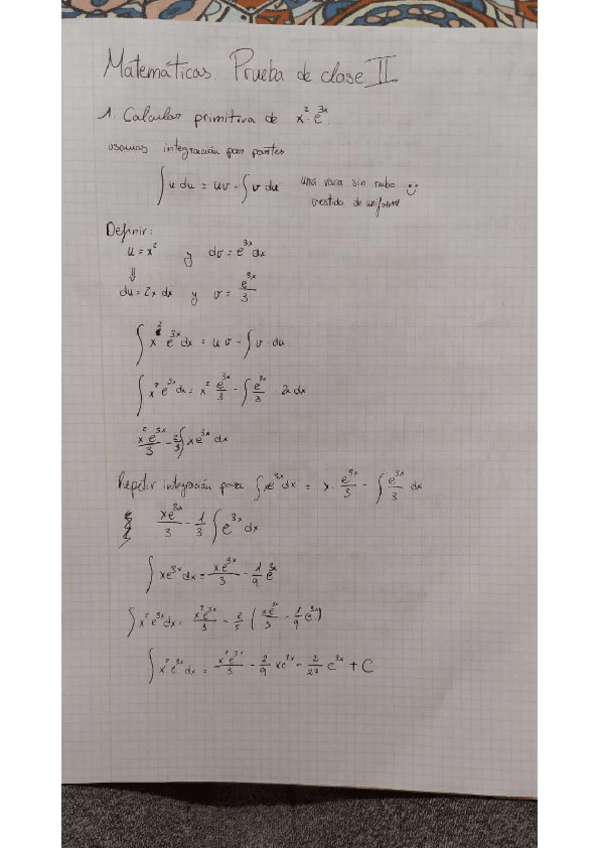 Matemáticas. Prueba de clase II
1. Calcular primitiva de x² · e^3x.
usamos integración por partes
∫ u du = uv - ∫ v du una vaca sin rabo
vestida de uniforme
Definir:
u = x² y dv = e^3x dx
⇓
du = 2x dx y v = e^3x/3
∫ x² e^3x dx = u v - ∫ v · du
∫ x² e^3x dx = x² e^3x/3 - ∫ e^3x/3 2 dx
x² e^3x/3 - 2/3 ∫ x e^3x dx
Repetir integración para ∫ x e^3x dx = x · e^3x/3 - ∫ e^3x/3 dx
x e^3x/3 - 1/3 ∫ e^3x dx
∫ x e^3x dx = x e^3x/3 - 1/9 e^3x
∫ x² e^3x dx = x² e^3x/3 - 2/3 (x e^3x/3 - 1/9 e^3x)
∫ x² e^3x dx = x² e^3x/3 - 2/9 x e^3x - 2/27 e^3x + C